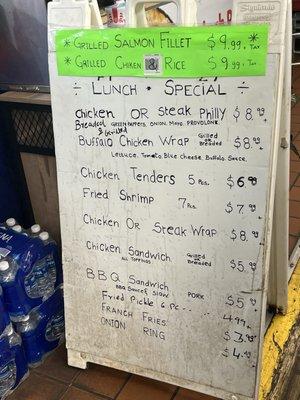 * GRILLED SALMON FILLET $9.99 + TAX
* GRILLED CHIKEN RICE $9.99 + TAX
÷ LUNCH • SPECIAL ÷
Chicken OR Steak Philly $8.99
Breaded GREEN PEPPERS. ONION. MAYO. PROVOLONE
& Grilled
Buffalo Chicken Wrap Grilled Breaded $8.99
Lettuce. Tomato. Blue cheese. Buffalo Sauce.
Chicken Tenders 5 Pcs. $6.99
Fried Shrimp 7 Pcs. $7.99
Chicken OR Steak Wrap $8.99
Chicken Sandwich Grilled Breaded $5.99
ALL TOPPINGS
BBQ Sandwich PORK $5.99
BBQ Sauce & Slaw
Fried Pickle 6 pc... 4.99
FRANCH FRIES $3.99
ONION RING $4.99